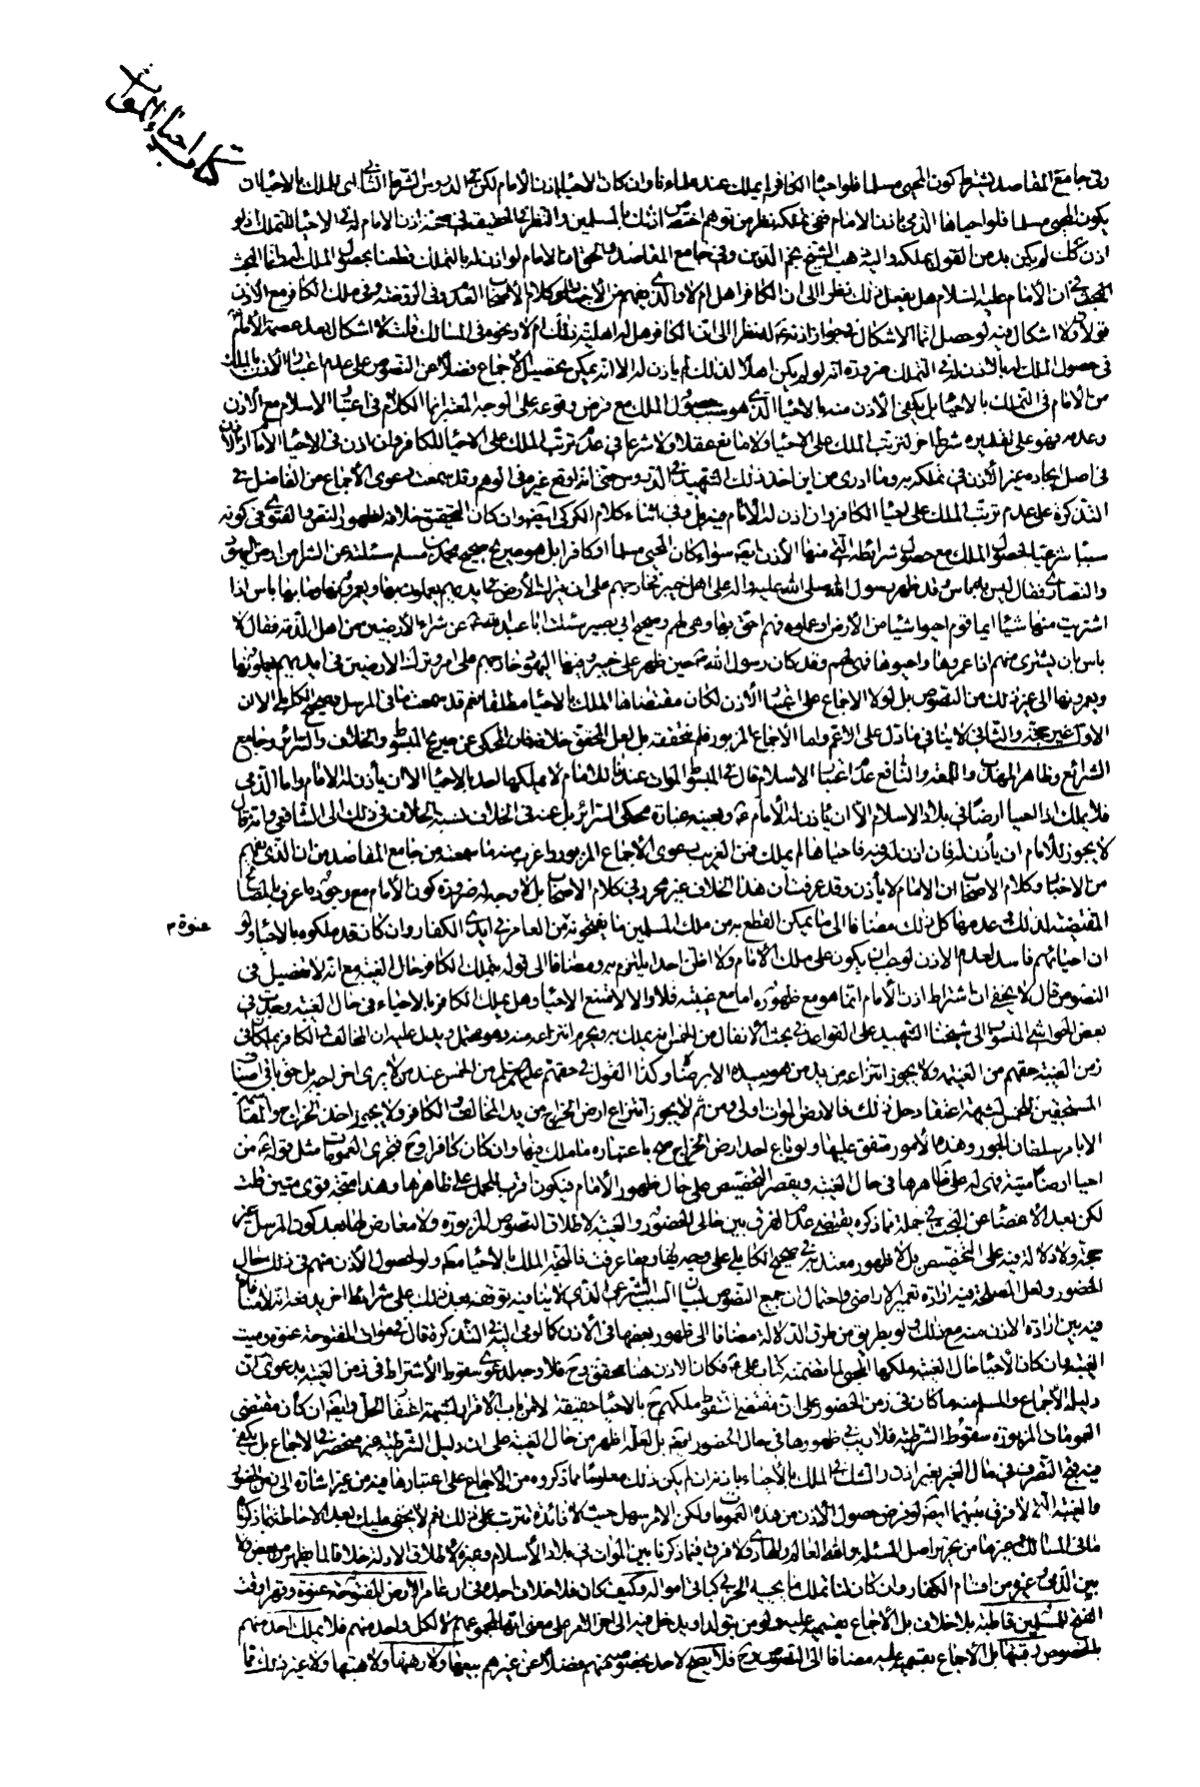 كتاب احياء الموات
وفي جامع المقاصد يشترط كون المحيي مسلما فلو احيا الكافر لم يملك عند علمائنا وان كان الاحياء باذن الامام لكن في الدروس الشرط الثاني ان يملك بالاحياء ان
يكون المحيي مسلما فلو احياها الذمي باذن الامام ففي تملكه نظر من توهم اختصاص ذلك بالمسلمين والنظر في الحقيقة في صحة اذن الامام له في الاحياء للتملك اذ لو
اذن كذلك لم يكن بد من القول بملكه واليه ذهب الشيخ نجم الدين وفي جامع المقاصد والحق ان الامام لو اذن له بالتملك قطعنا بحصول الملك له وانما البحث
في ان الامام عليه السلام هل يفعل ذلك نظرا الى ان الكافر اهل ام لا والذي يفهم من الاخبار وكلام الاصحاب العدم وفي الروضة وفي ملك الكافر مع الاذن
قولان ولا اشكال فيه لو حصل انما الاشكال في جواز اذنه له نظرا الى ان الكافر هل له اهلية ذلك ام لا ونحوه في المسالك قلت لا اشكال بعد عصمة الامام
في حصول الملك له بالاذن له في التملك ضرورة انه لو لم يكن اهلا لذلك لم يأذن له الا انه يمكن تحصيل الاجماع فضلا عن النصوص على عدم اعتبار الاذن بالملك
من الامام في التملك بالاحياء بل يكفي الاذن منه بالاحياء الذي هو سبب حصول الملك مع فرض وقوعه على الوجه المعتبر انما الكلام في اعتبار الاسلام مع الاذن
وعدمه فهو على تقديره شرط اخر لترتب الملك على الاحياء ولا مانع عقلا ولا شرعا في عدم ترتب الملك على الاحياء للكافر وان اذن في الاحياء الامام
في اصل ايجاده غير الاذن في تملكه به وما ادري من اين اخذ ذلك الشهيد في الدروس حتى انه اوقع غيره في الوهم وقد سمعت دعوى الاجماع من الفاضل في
التذكرة على عدم ترتب الملك على احياء الكافر وان اذن له الامام فيه بل وفي اثناء كلام الكركي ايضا وان كان التحقيق خلافه لظهور النص والفتوى في كونه
سببا شرعيا لحصول الملك مع حصول شرائطه التي منها الاذن ايضا سواء كان المحيي مسلما او كافرا بل هو صريح صحيح محمد بن مسلم سئلته عن الشراء من ارض اليهود
والنصارى فقال ليس به بأس وقد ظهر رسول الله صلى الله عليه واله على اهل خيبر فخارجهم على ان يترك الارض في ايديهم يعملون بها ويعمرونها وما بها باس اذا
اشتريت منها شيئا وايما قوم احيوا شيئا من الارض او عملوه فهم احق بها وهي لهم وصحيح ابي بصير سئلت ابا عبد الله عن شراء الارضين من اهل الذمة فقال لا
باس بان يشترى منهم اذا عمروها واحيوها فهي لهم وقد كان رسول الله حين ظهر على خيبر وفيها اليهود خارجهم على امر وترك الارضين في ايديهم يعملونها
ويعمرونها الى غير ذلك من النصوص بل لولا الاجماع على اعتبار الاذن لكان مقتضاها الملك بالاحياء مطلقا نعم قد سمعت ما في المرسل وصحيح الكابلي الا ان
الاول غير حجة والثاني لا ينافي ما دل على الاعم واما الاجماع المزبور فلم نتحققه بل لعل المحقق خلافه فان المحكي عن صريح المبسوط والخلاف والسرائر وجامع
الشرائع وظاهر المهذب واللمعة والنافع عدم اعتبار الاسلام قال في المبسوط الموات عندنا للامام لا يملكها احد بالاحياء الا ان يأذن له الامام واما الذمي
فلا يملك اذا احيا ارضا في بلاد الاسلام الا ان يأذن له الامام وبعينه عبارة محكي السرائر بل عنه في الخلاف نسبة الخلاف في ذلك الى الشافعي وانه قال
لا يجوز للامام ان يأذن له فان اذن له فيه فاحياها لم يملك فمن الغريب دعوى الاجماع المزبور واغرب منه ما سمعته من جامع المقاصد من ان الذي يفهم
من الاخبار وكلام الاصحاب ان الامام لا يأذن وقد عرفت ان هذا الخلاف غير محرر في كلام الاصحاب بل لا وجه له ضرورة كون الامام مع وجوده اعرف بالمصالح
المقتضية لذلك وعدمها كل ذلك مضافا الى ما يمكن القطع به من ملك المسلمين ما يفتحونه عنوة من العامر في ايدي الكفار وان كان قد ملكوه بالاحياء ولو
ان احيائهم فاسد لعدم الاذن لوجب ان يكون على ملك الامام ولا اظن احدا يلتزم به ومضافا الى قوله بتملك الكافر حال الغيبة مع انه لا تفصيل في
النصوص قال لا يخفى ان اشتراط اذن الامام انما هو مع ظهوره اما مع غيبته فلا والا لامتنع الاحياء وهل يملك الكافر بالاحياء في حال الغيبة وجدت في
بعض الحواشي المنسوبة الى شيخنا الشهيد على القواعد في بحث الانفال من الخمس انه يملك به ويحرم انتزاعه منه وهو محتمل ويدل عليه ان المخالف والكافر يملكان في
زمن الغيبة حقهم من الغنيمة ولا يجوز انتزاعه من يد من هو بيده الا برضاه وكذا القول في حقهم عليهم السلام من الخمس عند من لا يرى اخراجه بل حق باقي اصناف
المستحقين للخمس لشبهة اعتقاد حل ذلك فالارض الموات اولى ومن ثم لا يجوز انتزاع ارض الخراج من يد المخالف والكافر ولا يجوز اخذ الخراج والمقاسمة
الا بامر سلطان الجور وهذه الامور متفق عليها ولو باع احد ارض الخراج صح باعتبار ما ملك فيها وان كان كافرا وح فتجرى العمومات مثل قوله من
احيا ارضا ميتة فهي له على ظاهرها في حال الغيبة ويقصر التخصيص على حال ظهور الامام فيكون اقرب للحمل على ظاهرها وهذا متجه قوي متين قلت
لكن بعد الاغضاء عن البحث في جملة مما ذكره يقتضي عدم الفرق بين حالي الحضور والغيبة لاطلاق النصوص المزبورة ولا معارض لها بعد كون المرسل غير
حجة ولا دلالة فيه على التخصيص بل لا ظهور معتد به في صحيح الكابلي على وجه يقاوم ما عرفت فالمتجه الملك بالاحياء معه ولو لحصول الاذن منهم في ذلك حال
الحضور ولعل المصلحة فيه ارادة تعمير الاراضي واحتمال ان جميع النصوص لبيان السبب الشرعي الذي لا ينافيه توقفه بعد ذلك على شرائط اخر يدفعه انه لا منافاة
فيه بين ارادة الاذن منه مع ذلك ولو بطريق من طرق الدلالة مضافا الى ظهور بعضها في الاذن كما اومى اليه في التذكرة قال في موات المفتوحة عنوة
الغيبة وان كان الاحياء حال الغيبة ملكها المحيي لما تضمنه كتاب علي فكان الاذن هنا متحقق وح فلا وجه لدعوى سقوط الاشتراط في زمن الغيبة بدعوى ان
دليله الاجماع والمسلم منه ما كان في زمن الحضور على ان مقتضى سقوط ملكهم ح بالاحياء حقيقة لا من باب الاقرار لشبهة اعتقاد الحل وايضا ان كان مقتضى
العمومات المزبورة سقوط الشرطية فلا ريب في ظهورها في حال الحضور ايضا بل لعله اظهر من حال الغيبة على ان دليل الشرطية غير منحصر في الاجماع بل يكفي
فيه قبح التصرف في مال الغير بغير اذنه والشك في الملك بالاحياء بدونه ان لم يكن ذلك معلوما مما ذكروه من الاجماع على اعتبارها فيه من غير اشارة الى زمن الحضور
والغيبة لا فرق بينهما ايضا لو فرض حصول الاذن من هذه العمومات ولكن الامر سهل حيث لا فائدة تترتب على ذلك نعم لا يخفى عليك بعد الاحاطة بما ذكرنا
ما في المسالك وغيرها من تحرير اصل المسئلة والله العالم والهادي ولا فرق فيما ذكرنا بين الموات في بلاد الاسلام وغيره لاطلاق الادلة خلافا لما يظهر من بعض
بين الذمي وغيره من اقسام الكفار وان كان لنا تملك ما يحييه الحربي كباقي امواله وكيف كان فلا خلاف اجده في ان عامر الارض المفتوحة عنوة وقهرا وقت
الفتح للمسلمين قاطبة بلا خلاف بل الاجماع بقسميه عليه ولو من يتولد او يدخل فيه الى اخر الدهر على معنى انه لمجموعهم لا لكل واحد منهم فلا يملك احد منهم
بالخصوص رقبتها بل الاجماع بقسميه عليه مضافا الى النصوص وح فلا يصح لاحد بخصوصه منهم فضلا عن غيرهم بيعها ولا رهنها ولا هبتها ولا غير ذلك مما
عنوة م